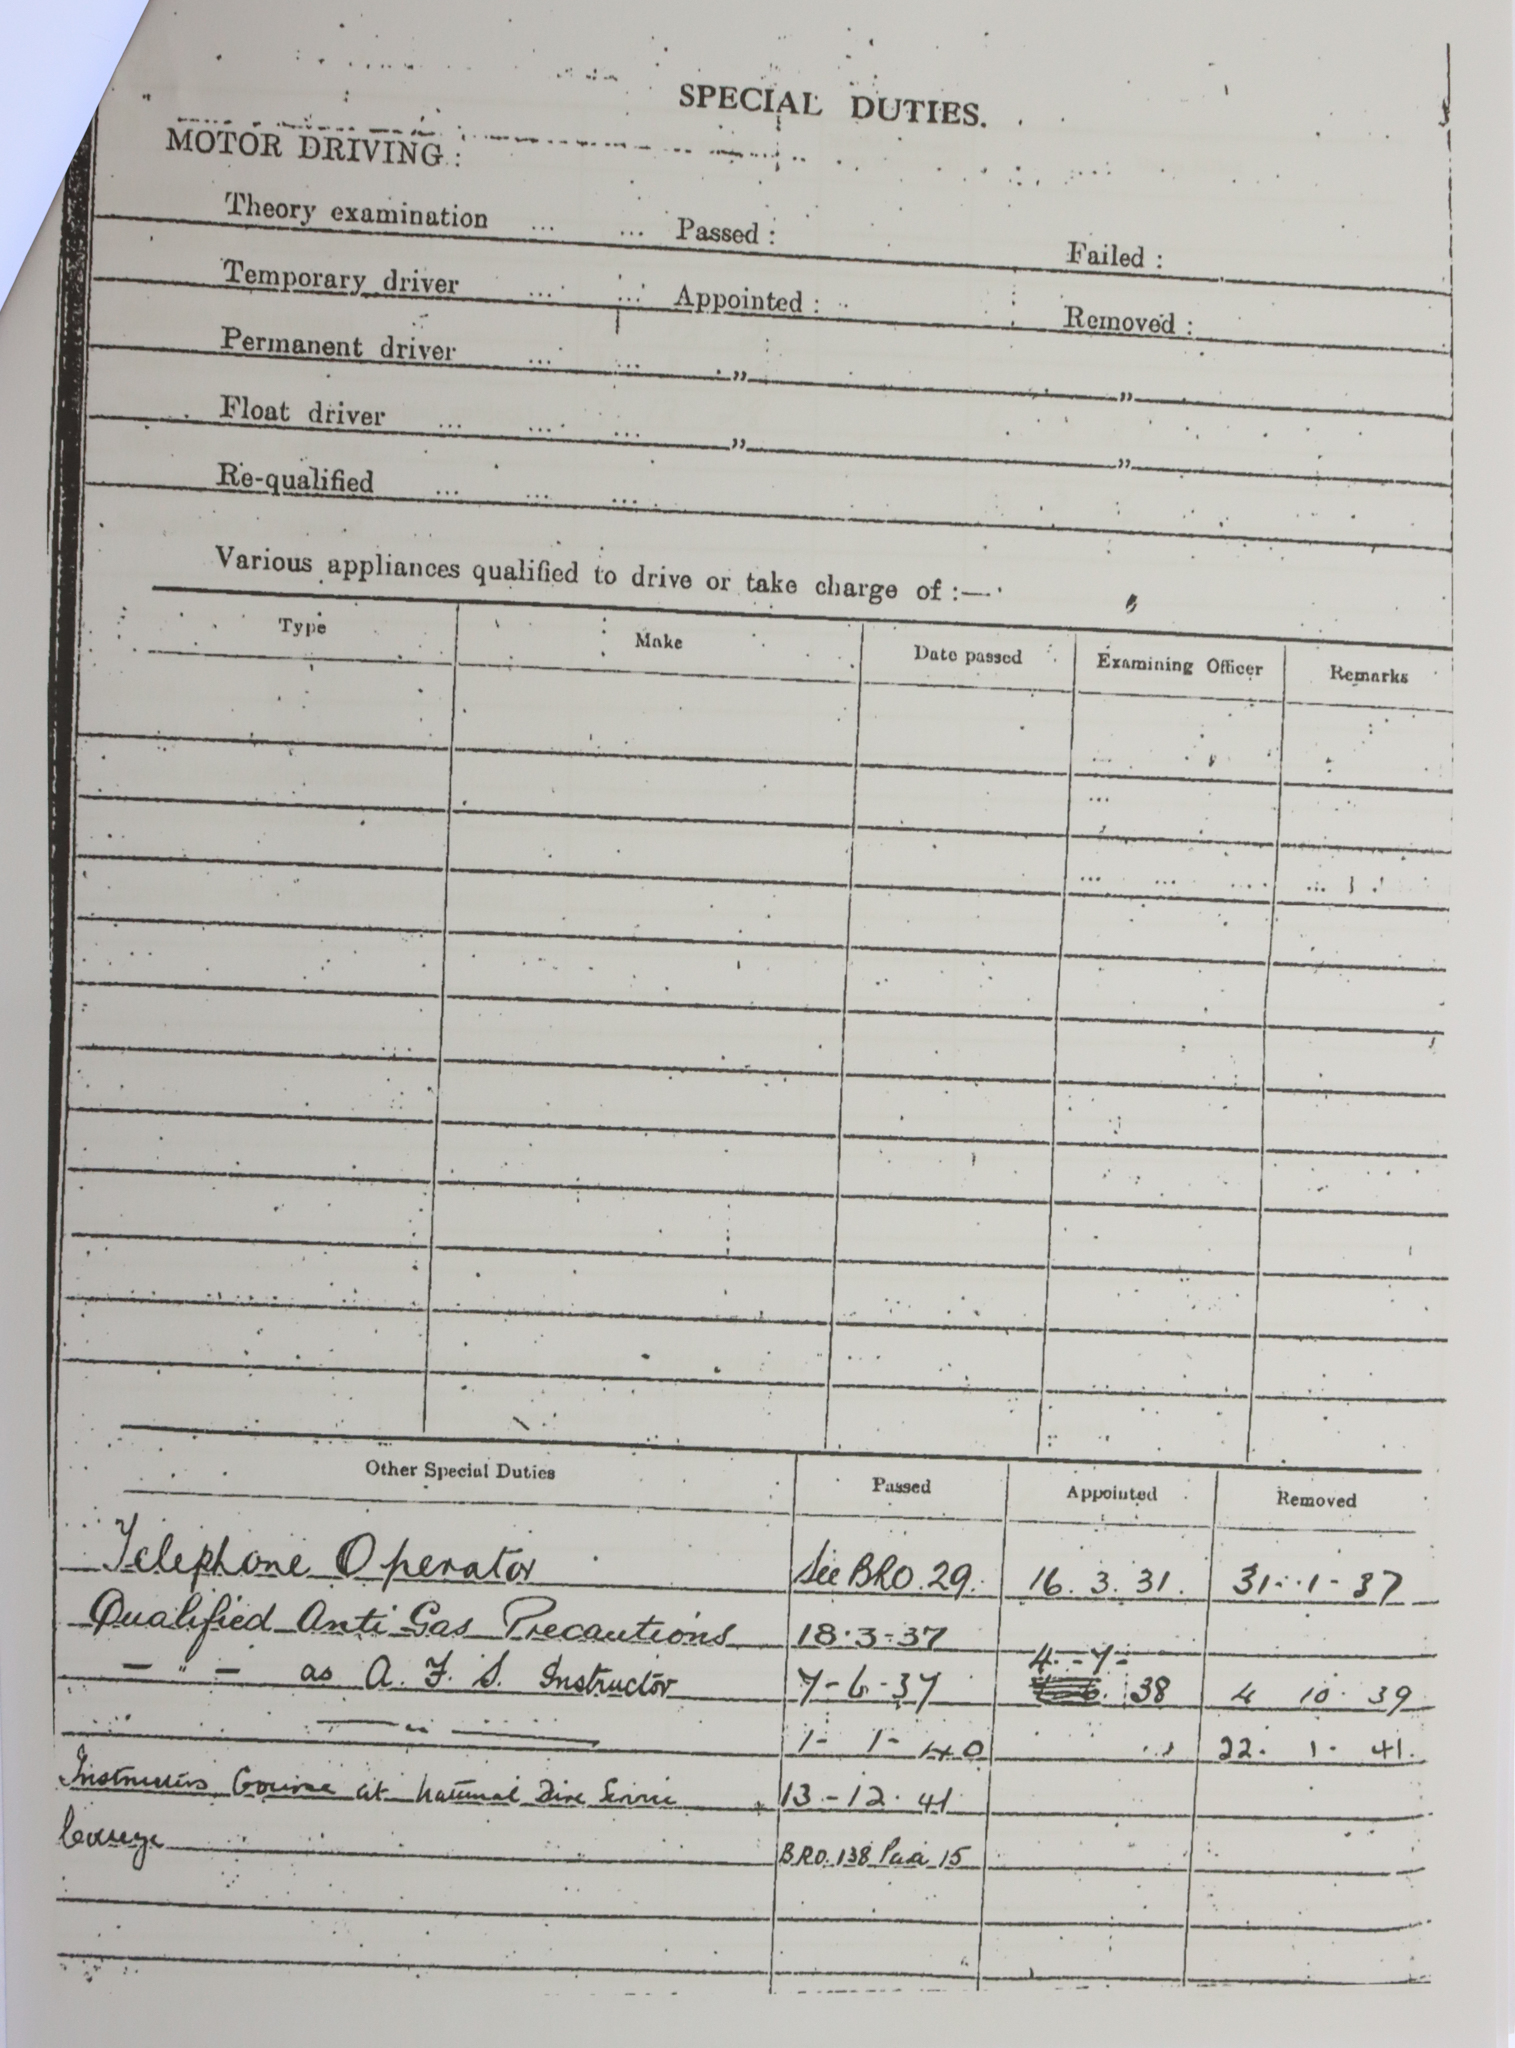 SPECIAL DUTIES.
MOTOR DRIVING :
Theory examination ... ... Passed : Failed :
Temporary driver ... ... Appointed : Removed :
Permanent driver ... ... „ „
Float driver ... ... ... „ „
Re-qualified ... ... ...
Various appliances qualified to drive or take charge of :—
Type Make Date passed Examining Officer Remarks
Other Special Duties Passed Appointed Removed
Telephone Operator See BRO. 29. 16. 3. 31. 31-1-37
Qualified Anti Gas Precautions 18.3-37
— " — as A. F. S. Instructor 7-6-37 4-7-38 4 10. 39
— " — 1-1-40 22. 1. 41.
Instructors Course at National Fire Service 13-12.41
College BRO. 138 Para 15